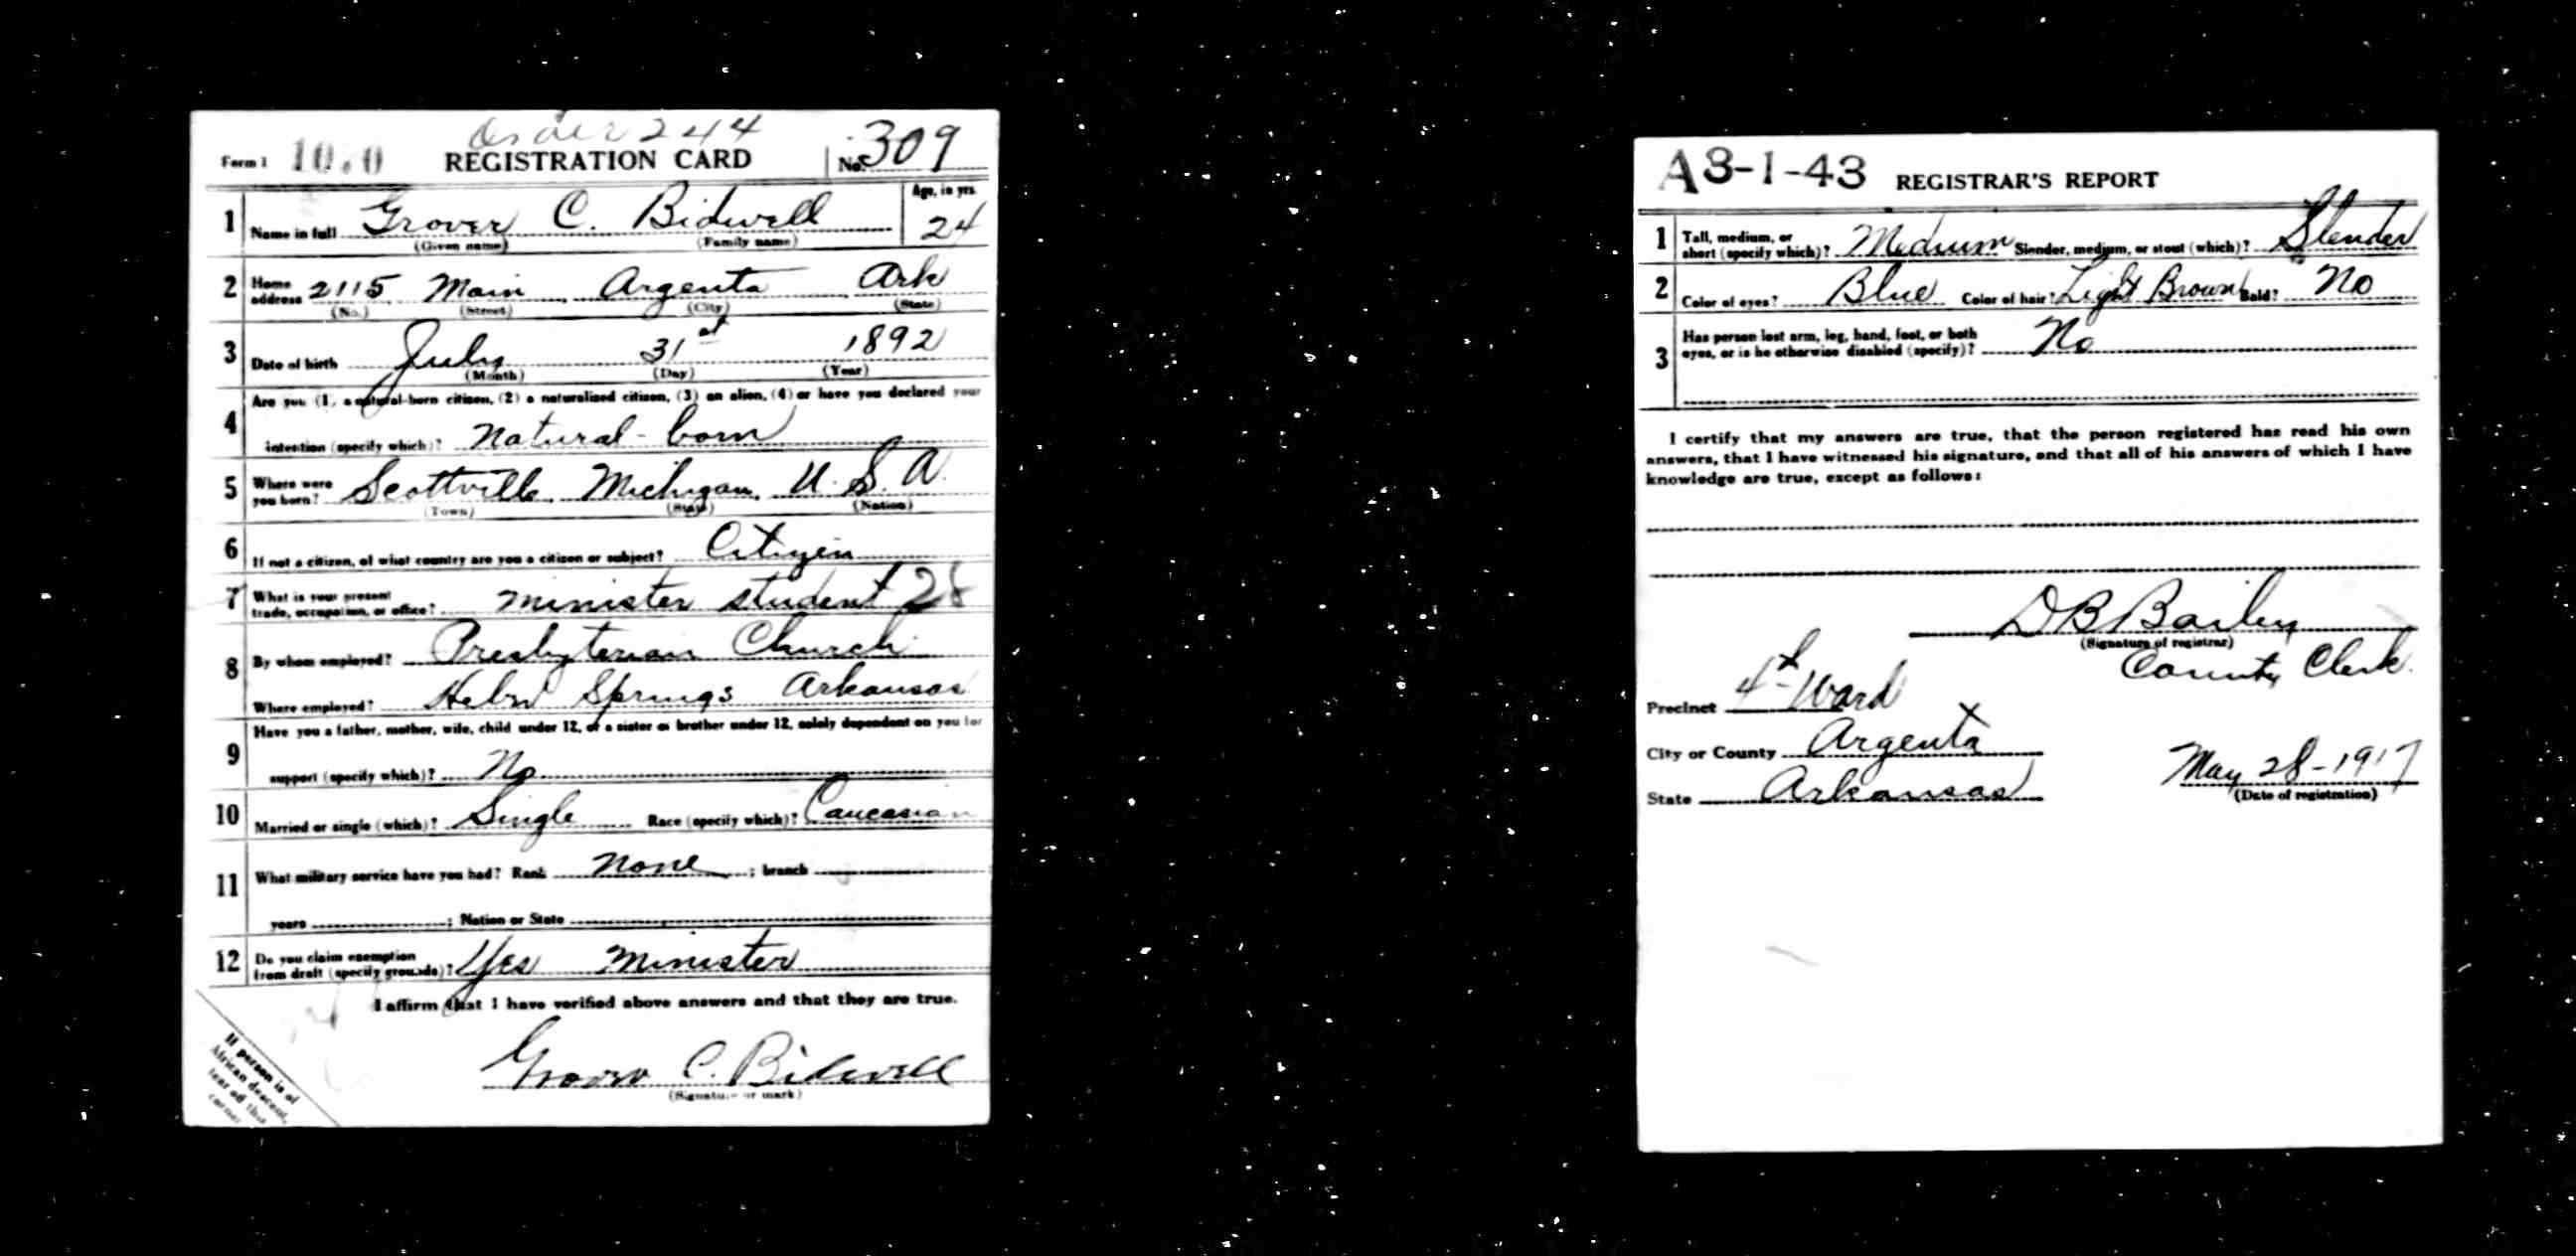 Order 244
Form 1 REGISTRATION CARD No. 309
1 Name in full Grover C. Bidwell Age, in yrs. 24
(Given name) (Family name)
2 Home address 2115 Main Argenta Ark
(No.) (Street) (City) (State)
3 Date of birth July 31st 1892
(Month) (Day) (Year)
4 Are you (1) a natural-born citizen, (2) a naturalized citizen, (3) an alien, (4) or have you declared your
intention (specify which)? Natural-born
5 Where were you born? Scottville Michigan U.S.A.
(Town) (State) (Nation)
6 If not a citizen, of what country are you a citizen or subject? Citizen
7 What is your present trade, occupation, or office? minister student 28
8 By whom employed? Presbyterian Church
Where employed? Springs Arkansas
9 Have you a father, mother, wife, child under 12, or a sister or brother under 12, solely dependent on you for
support (specify which)? No
10 Married or single (which)? Single Race (specify which)? Caucasian
11 What military service have you had? Rank none ; branch
years ; Nation or State
12 Do you claim exemption from draft (specify grounds)? Yes Minister
I affirm that I have verified above answers and that they are true.
Grover C. Bidwell
(Signature or mark)
If person is of
African descent,
tear off this
corner
A3-1-43 REGISTRAR'S REPORT
1 Tall, medium, or short (specify which)? Medium Slender, medium, or stout (which)? Slender
2 Color of eyes? Blue Color of hair? Light Brown Bald? No
3 Has person lost arm, leg, hand, foot, or both
eyes, or is he otherwise disabled (specify)? No
I certify that my answers are true, that the person registered has read his own
answers, that I have witnessed his signature, and that all of his answers of which I have
knowledge are true, except as follows:
D B Bailey
(Signature of registrar)
County Clerk.
Precinct 4th Ward
City or County Argenta
State Arkansas
May 28-1917
(Date of registration)